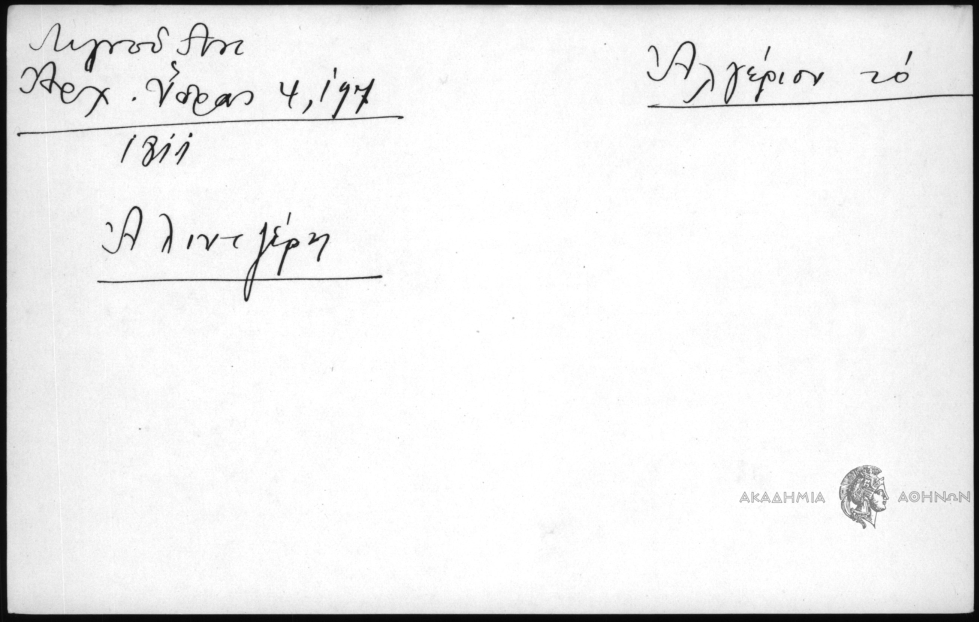 Λιγνοῦ Αντ
Ἀρχ. Ὕδρας 4, 197
1811
Ἀλιντζέρη
Ἀλγέριον τό
ΑΚΑΔΗΜΙΑ ΑΘΗΝΩΝ